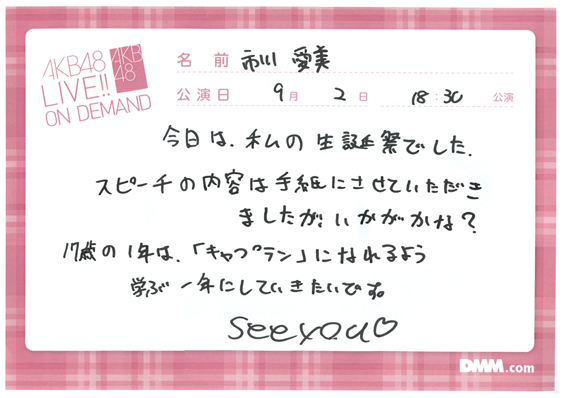 AKB48
LIVE!!
ON DEMAND
AKB
48
名前 市川 愛美
公演日 9月 2日 18:30 公演
今日は、私の生誕祭でした。
スピーチの内容は手紙にさせていただき
ましたが、いかがかな?
17歳の1年は、「キャプテン」になれるよう
学ぶ一年にしていきたいです。
see you♡
DMM.com